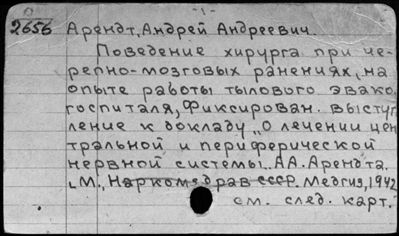 2656 Арендт, Андрей Андреевич.
Поведение хирурга при че-
репно-мозговых ранениях, на
опыте работы тылового эвако
госпиталя, Фиксирован. выступ
ление к докладу „О лечении цен
тральной и периферической
нервной системы. А.А. Арендта.
М., Наркомздрав СССР. Медгиз, 1942
см. след. карт.